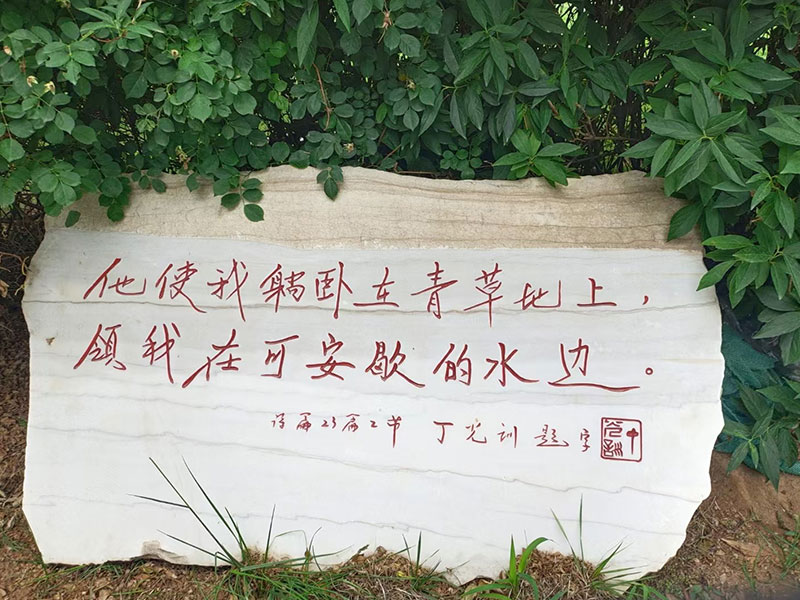 他使我躺卧在青草地上，
领我在可安歇的水边。
诗篇23篇2节 丁光训题字